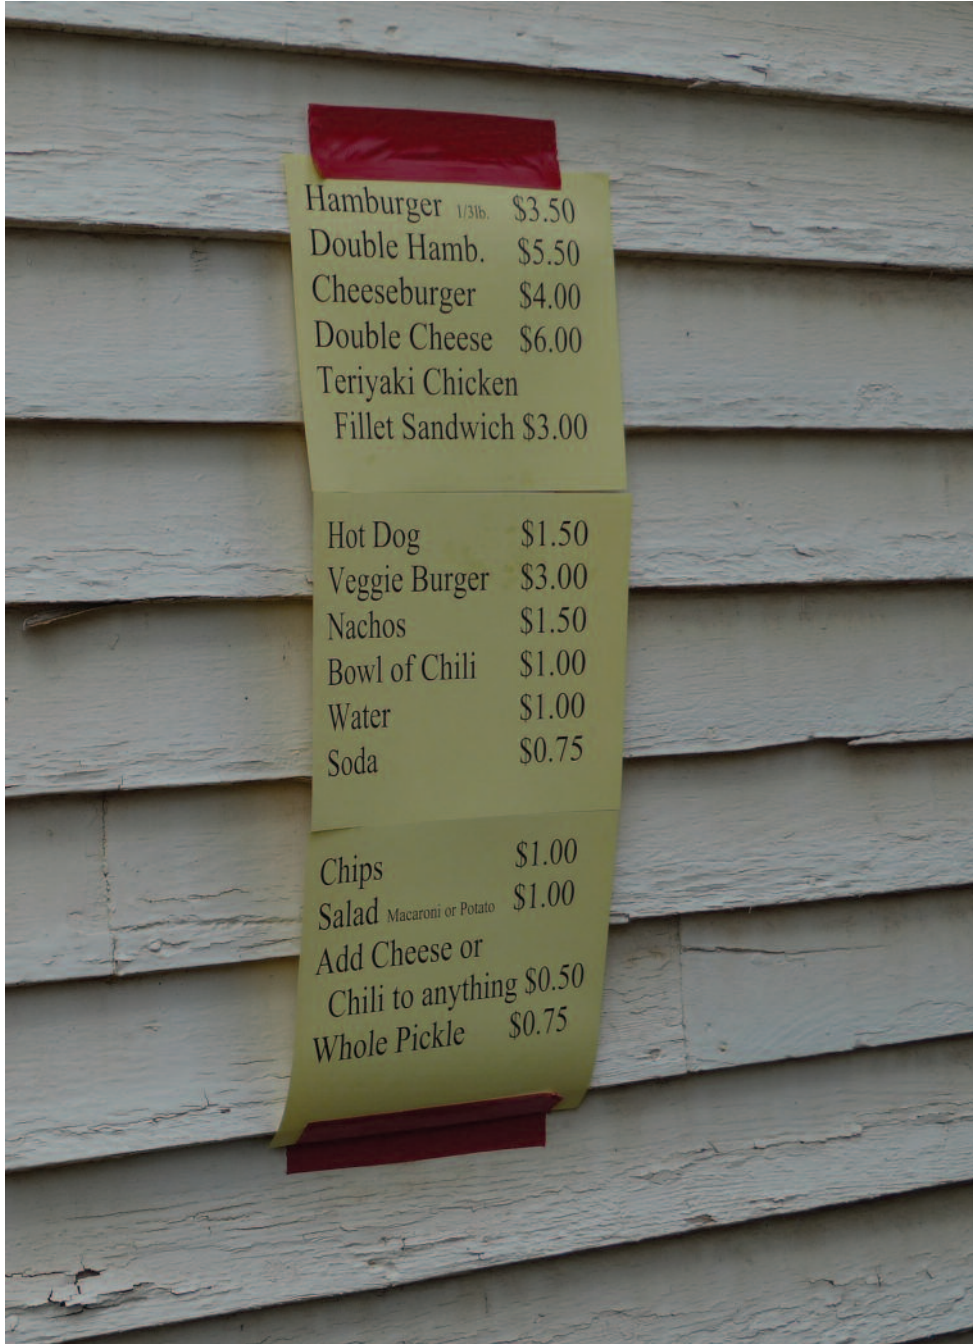 Hamburger 1/3lb. $3.50
Double Hamb. $5.50
Cheeseburger $4.00
Double Cheese $6.00
Teriyaki Chicken
Fillet Sandwich $3.00
Hot Dog $1.50
Veggie Burger $3.00
Nachos $1.50
Bowl of Chili $1.00
Water $1.00
Soda $0.75
Chips $1.00
Salad Macaroni or Potato $1.00
Add Cheese or
Chili to anything $0.50
Whole Pickle $0.75